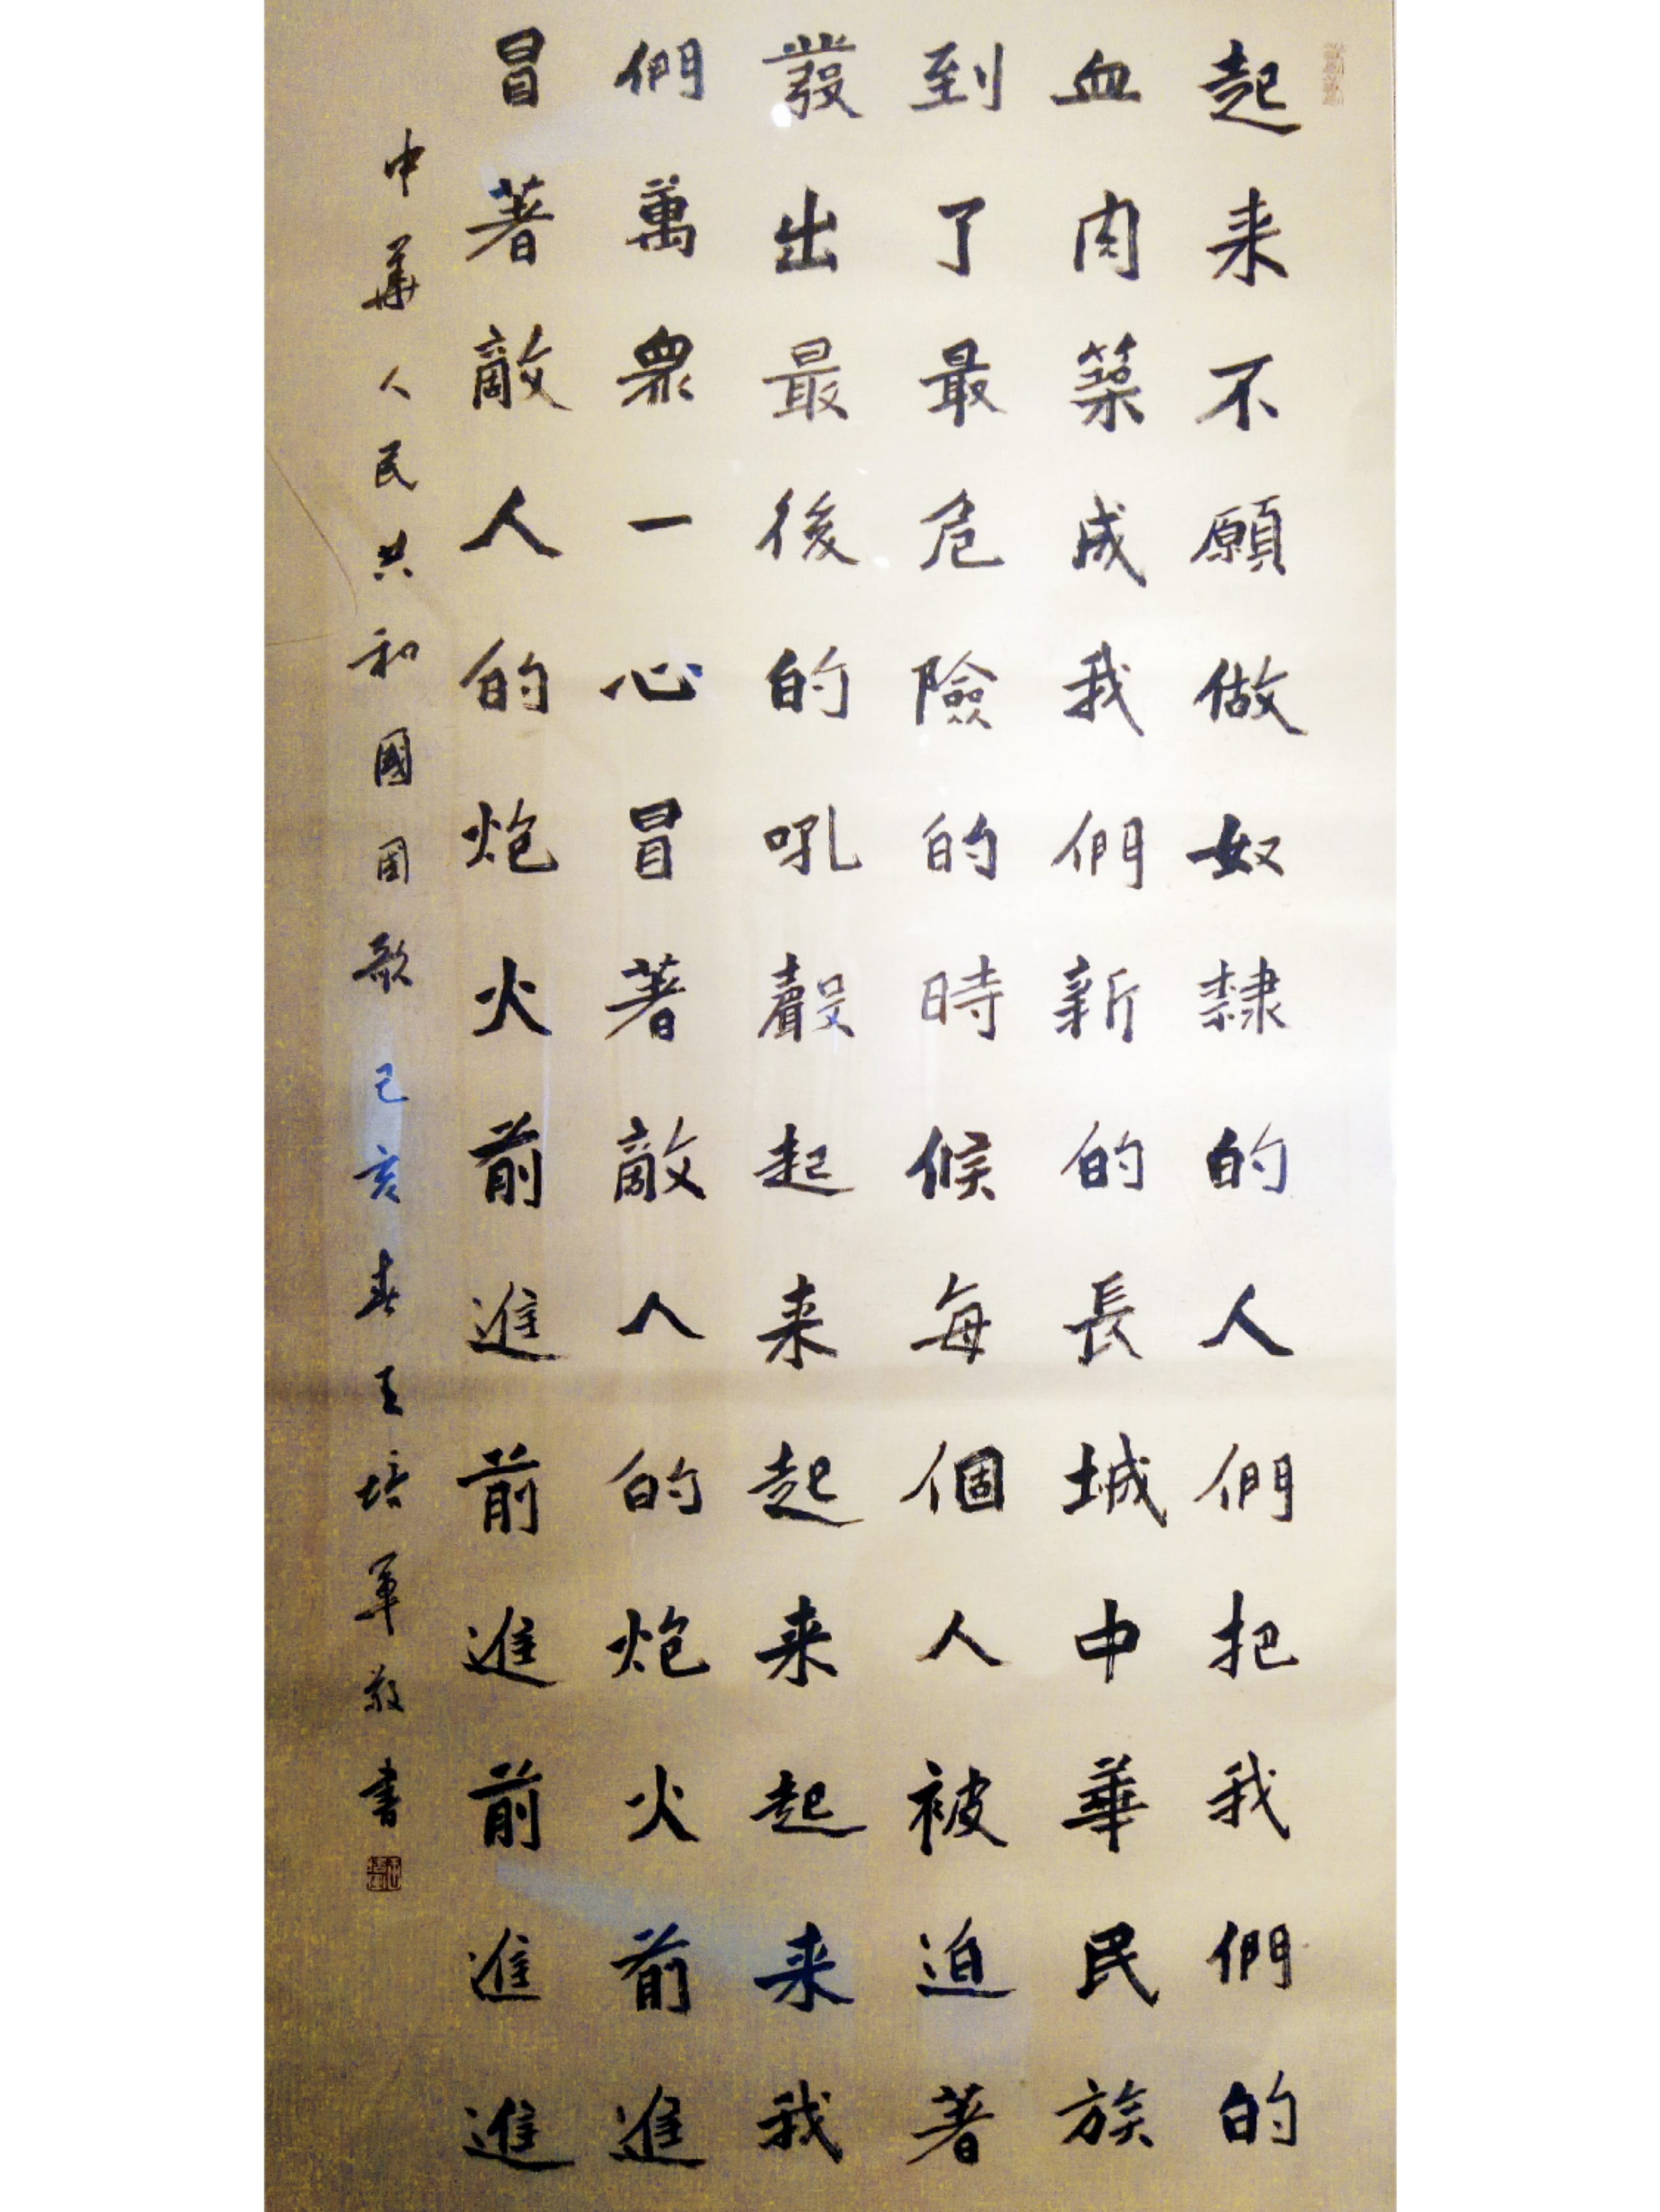 起来不願做奴隸的人們把我們的
血肉築成我們新的長城中華民族
到了最危險的時候每個人被迫著
發出最後的吼聲起来起来起来我
們萬眾一心冒著敵人的炮火前進
冒著敵人的炮火前進前進前進進
中華人民共和國國歌己亥春王培軍敬書